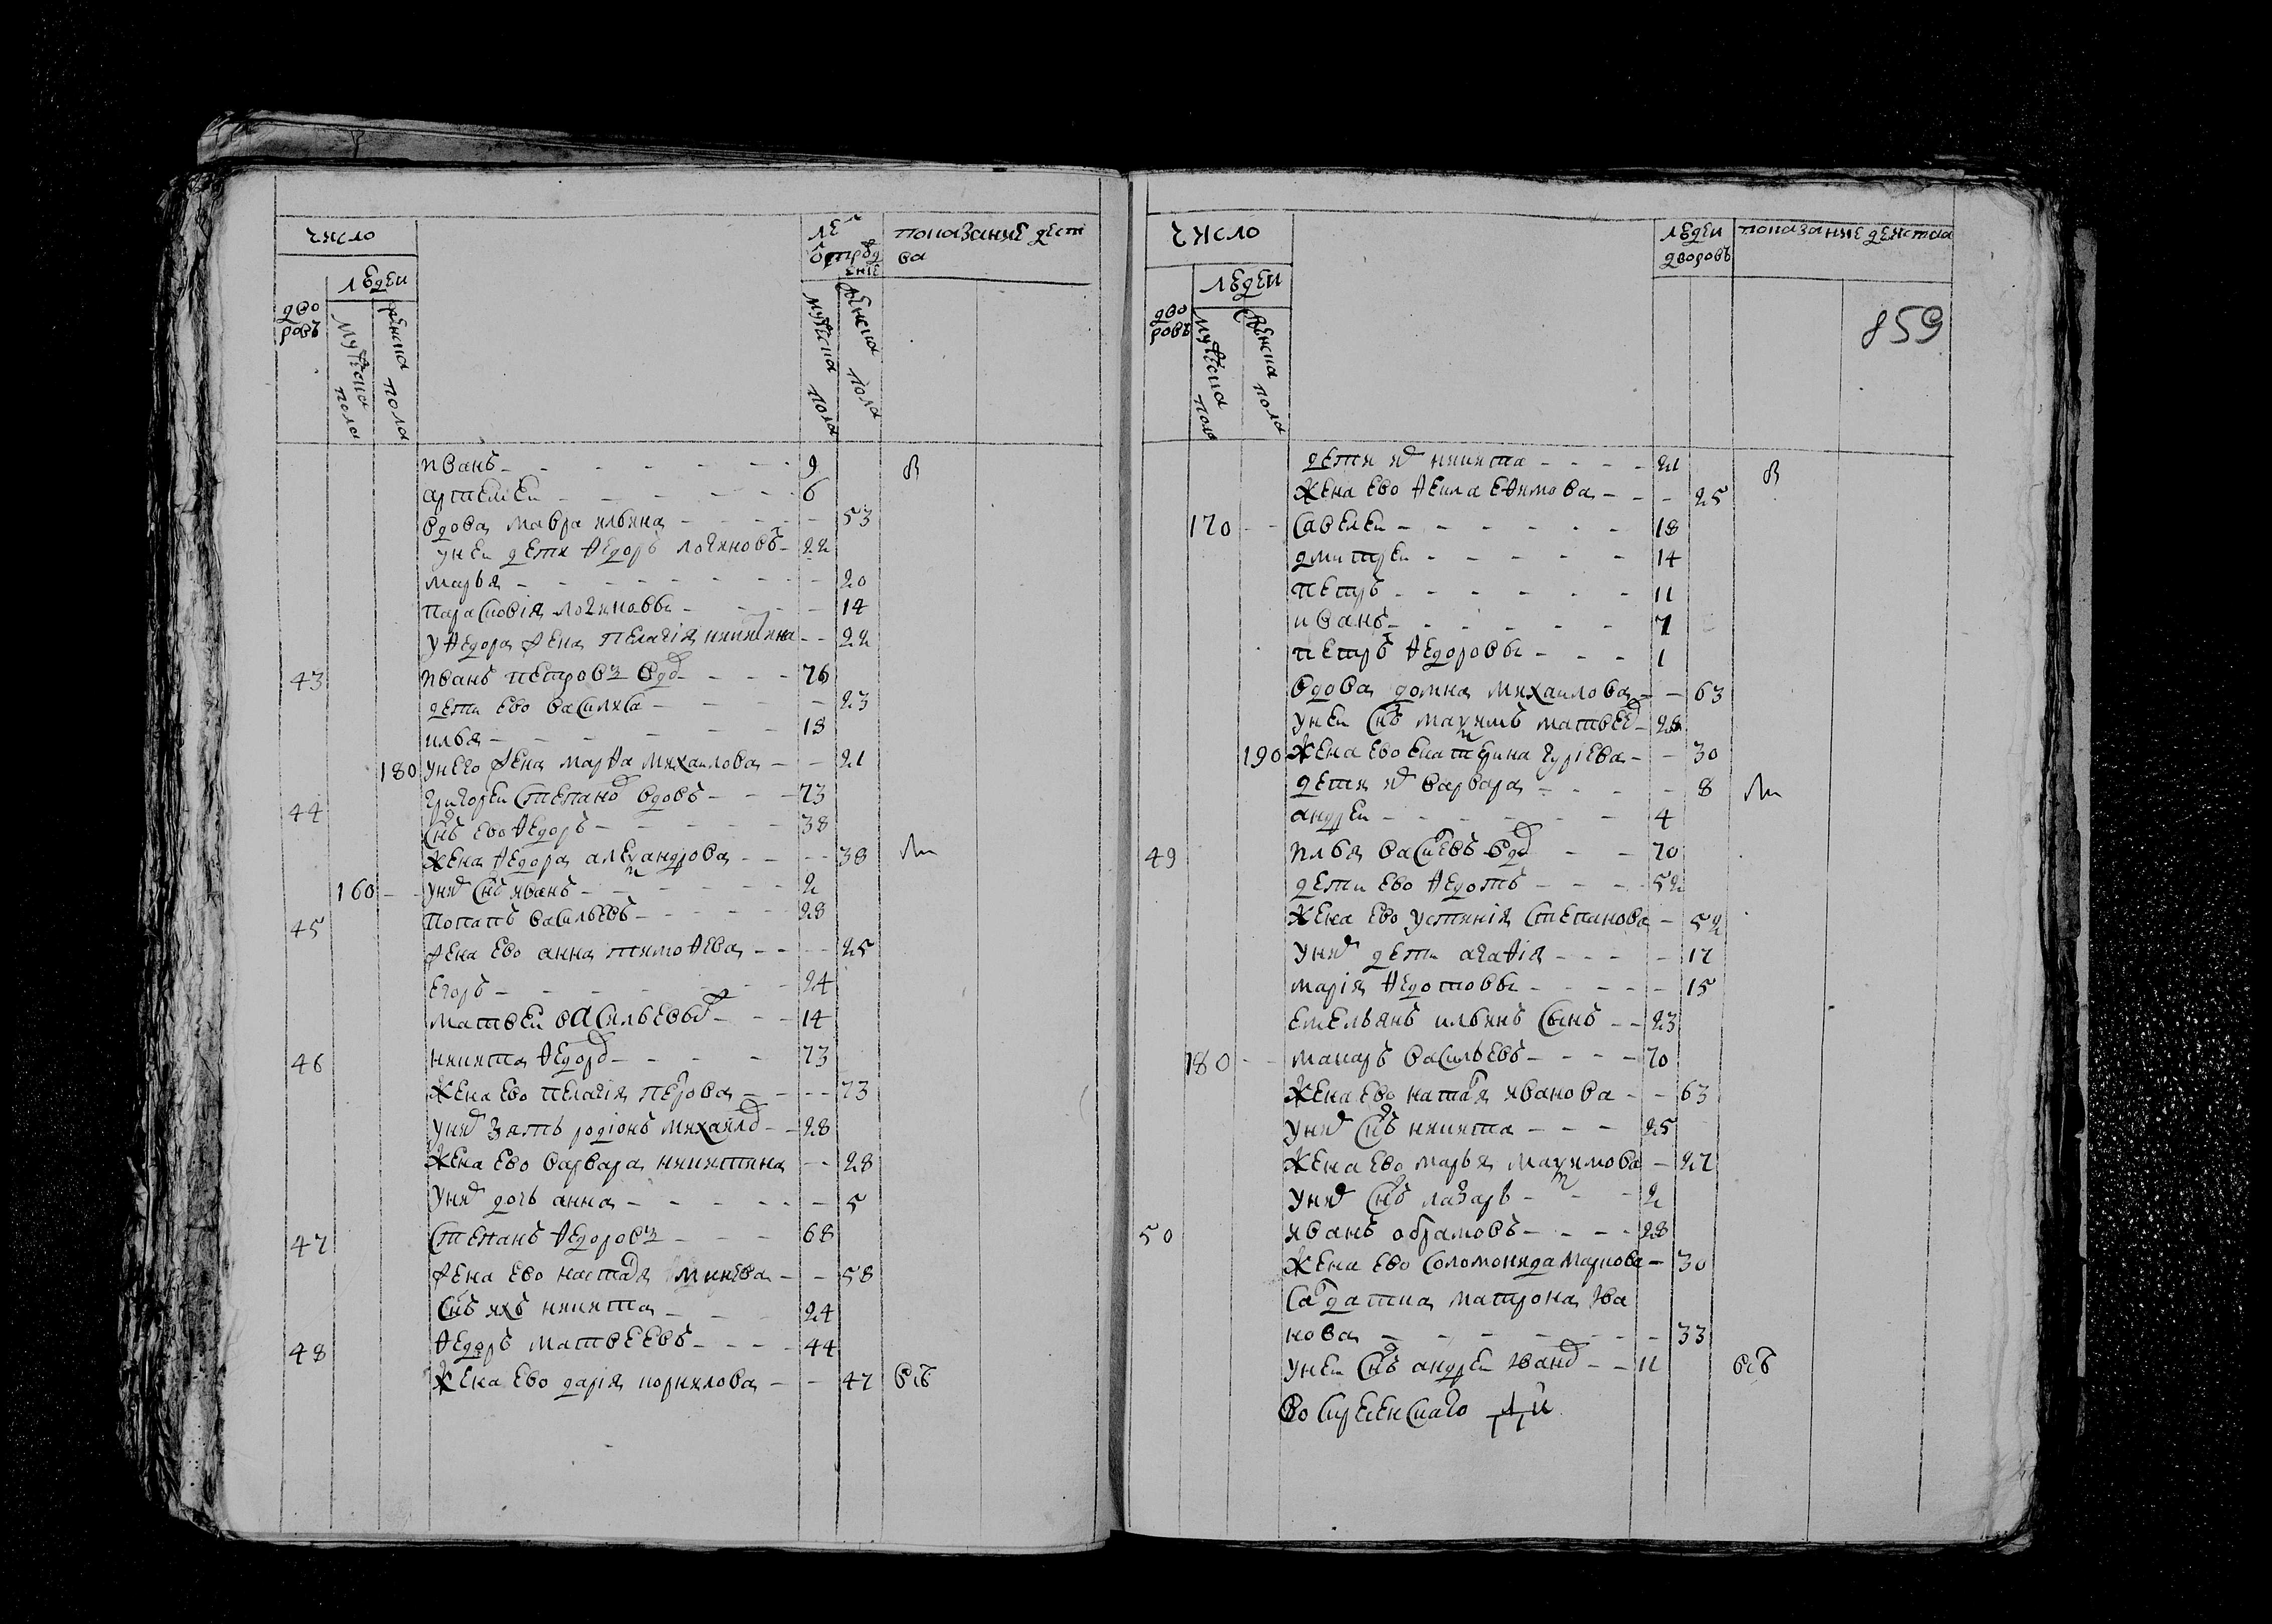 число
людеи
дво
ровъ
мужеска пола
женска пола
ле
мужеска пола
женска пола
показание деист
ва
иванъ - 9 в
артемеи - 6
вдова мавра ильина - 53
унеи дети федоръ логиновъ - 22
марья - 20
парасковія логиновы - 14
у федора жена пелагія никитина - 22
43 иванъ петровъ вдо - 76
дети ево василиса - 23
илья - 18
180 унего жена марфа михаилова - 21
44 григореи степано вдовъ - 73
снъ ево федоръ - 38
жена федора александрова - 38 ли
160 уни снъ иванъ - 2
45 потапъ васильевъ - 28
жена ево анна тимофева - 25
егоръ - 24
матвеи васильевы - 14
46 никита федоро - 73
жена ево пелагія петрова - 73
уни зять родіонъ михаило - 28
жена ево варвара никитина - 28
уни дочь анна - 5
47 степанъ федоровъ - 68
жена ево настася минева - 58
снъ ихъ никита - 24
48 федоръ матвеевъ - 44
жена ево дарія корнилова - 47 всѣ
число
людеи
дво
ровъ
мужеска пола
женска пола
людеи
дворовъ
показание деиства
859
дети и никита - 21 в
жена ево фекла ефимова - 25
170 савелеи - 18
дмитреи - 14
петръ - 11
иванъ - 7
петръ федоровы - 1
вдова домна михаилова - 63
унеи снъ максимъ матвее - 28
190 жена ево екатерина гуріева - 30
дети и варвара - 8 ли
андреи - 4
49 илья васиевъ вдо - 70
дети ево федотъ - 52
жена ево устинія степанова - 52
уни дети агафія - 17
марія федотовы - 15
емельянъ ильинъ сынъ - 23
180 макаръ васильевъ - 70
жена ево натая иванова - 63
уни снъ никита - 25
жена ево марья максимова - 27
уни снъ лазарь - 2
50 иванъ обрамовъ - 28
жена ево соломонида маркова - 30
садатка матрона ива
нова - 33
унеи снъ андреи ивано - 11 всѣ
воскресенскаго